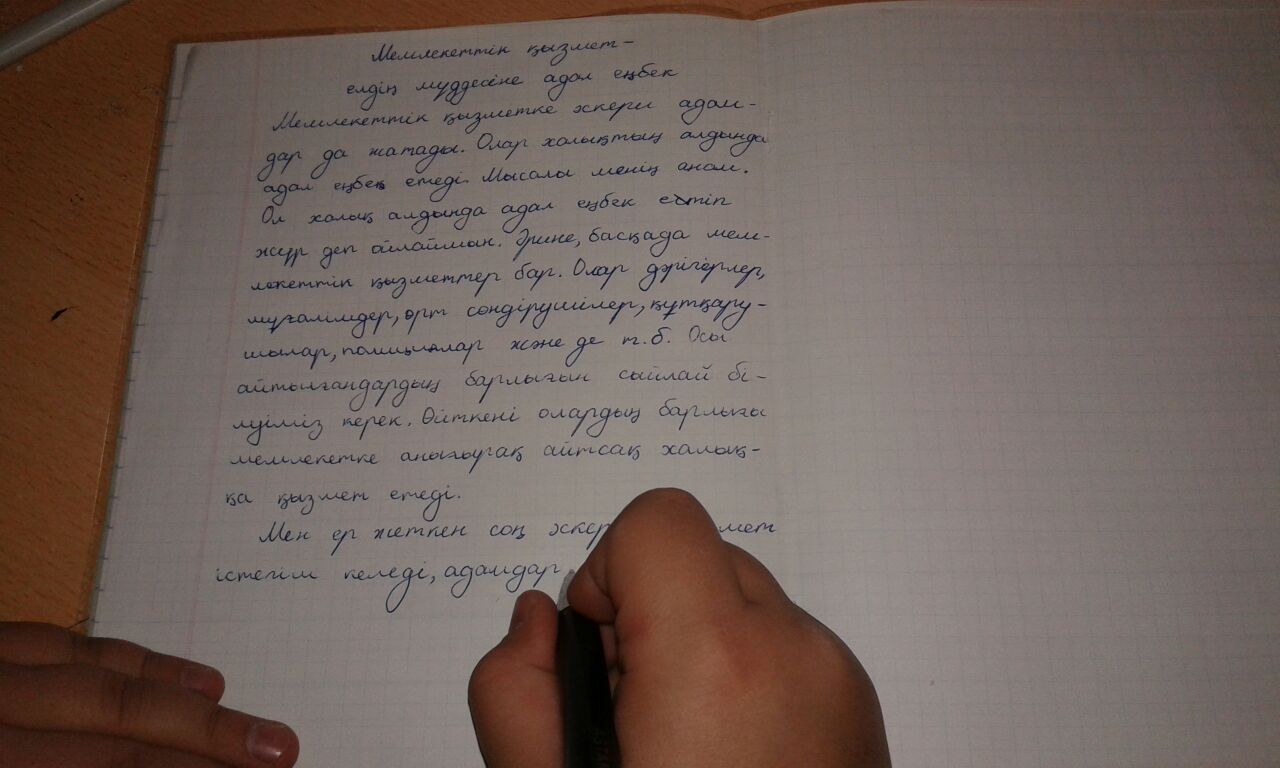 Мемлекеттік қызмет-
елдің мүддесіне адал еңбек
Мемлекеттік қызметке әскери адам-
дар да жатады. Олар халықтың алдында
адал еңбек етеді. Мысалы менің анам.
Ол халық алдында адал еңбек етіп
жүр деп ойлаймын. Әрине, басқада мем-
лекеттік қызметтер бар. Олар дәрігерлер,
мұғалімдер, өрт сөндірушілер, құтқару-
шылар, полициялар және де т.б. Осы
айтылғандардың барлығын сыйлай бі-
луіміз керек. Өйткені олардың барлығы
мемлекетке анығырақ айтсақ халық-
қа қызмет етеді.
Мен ер жеткен соң
істегім келеді, адамдар